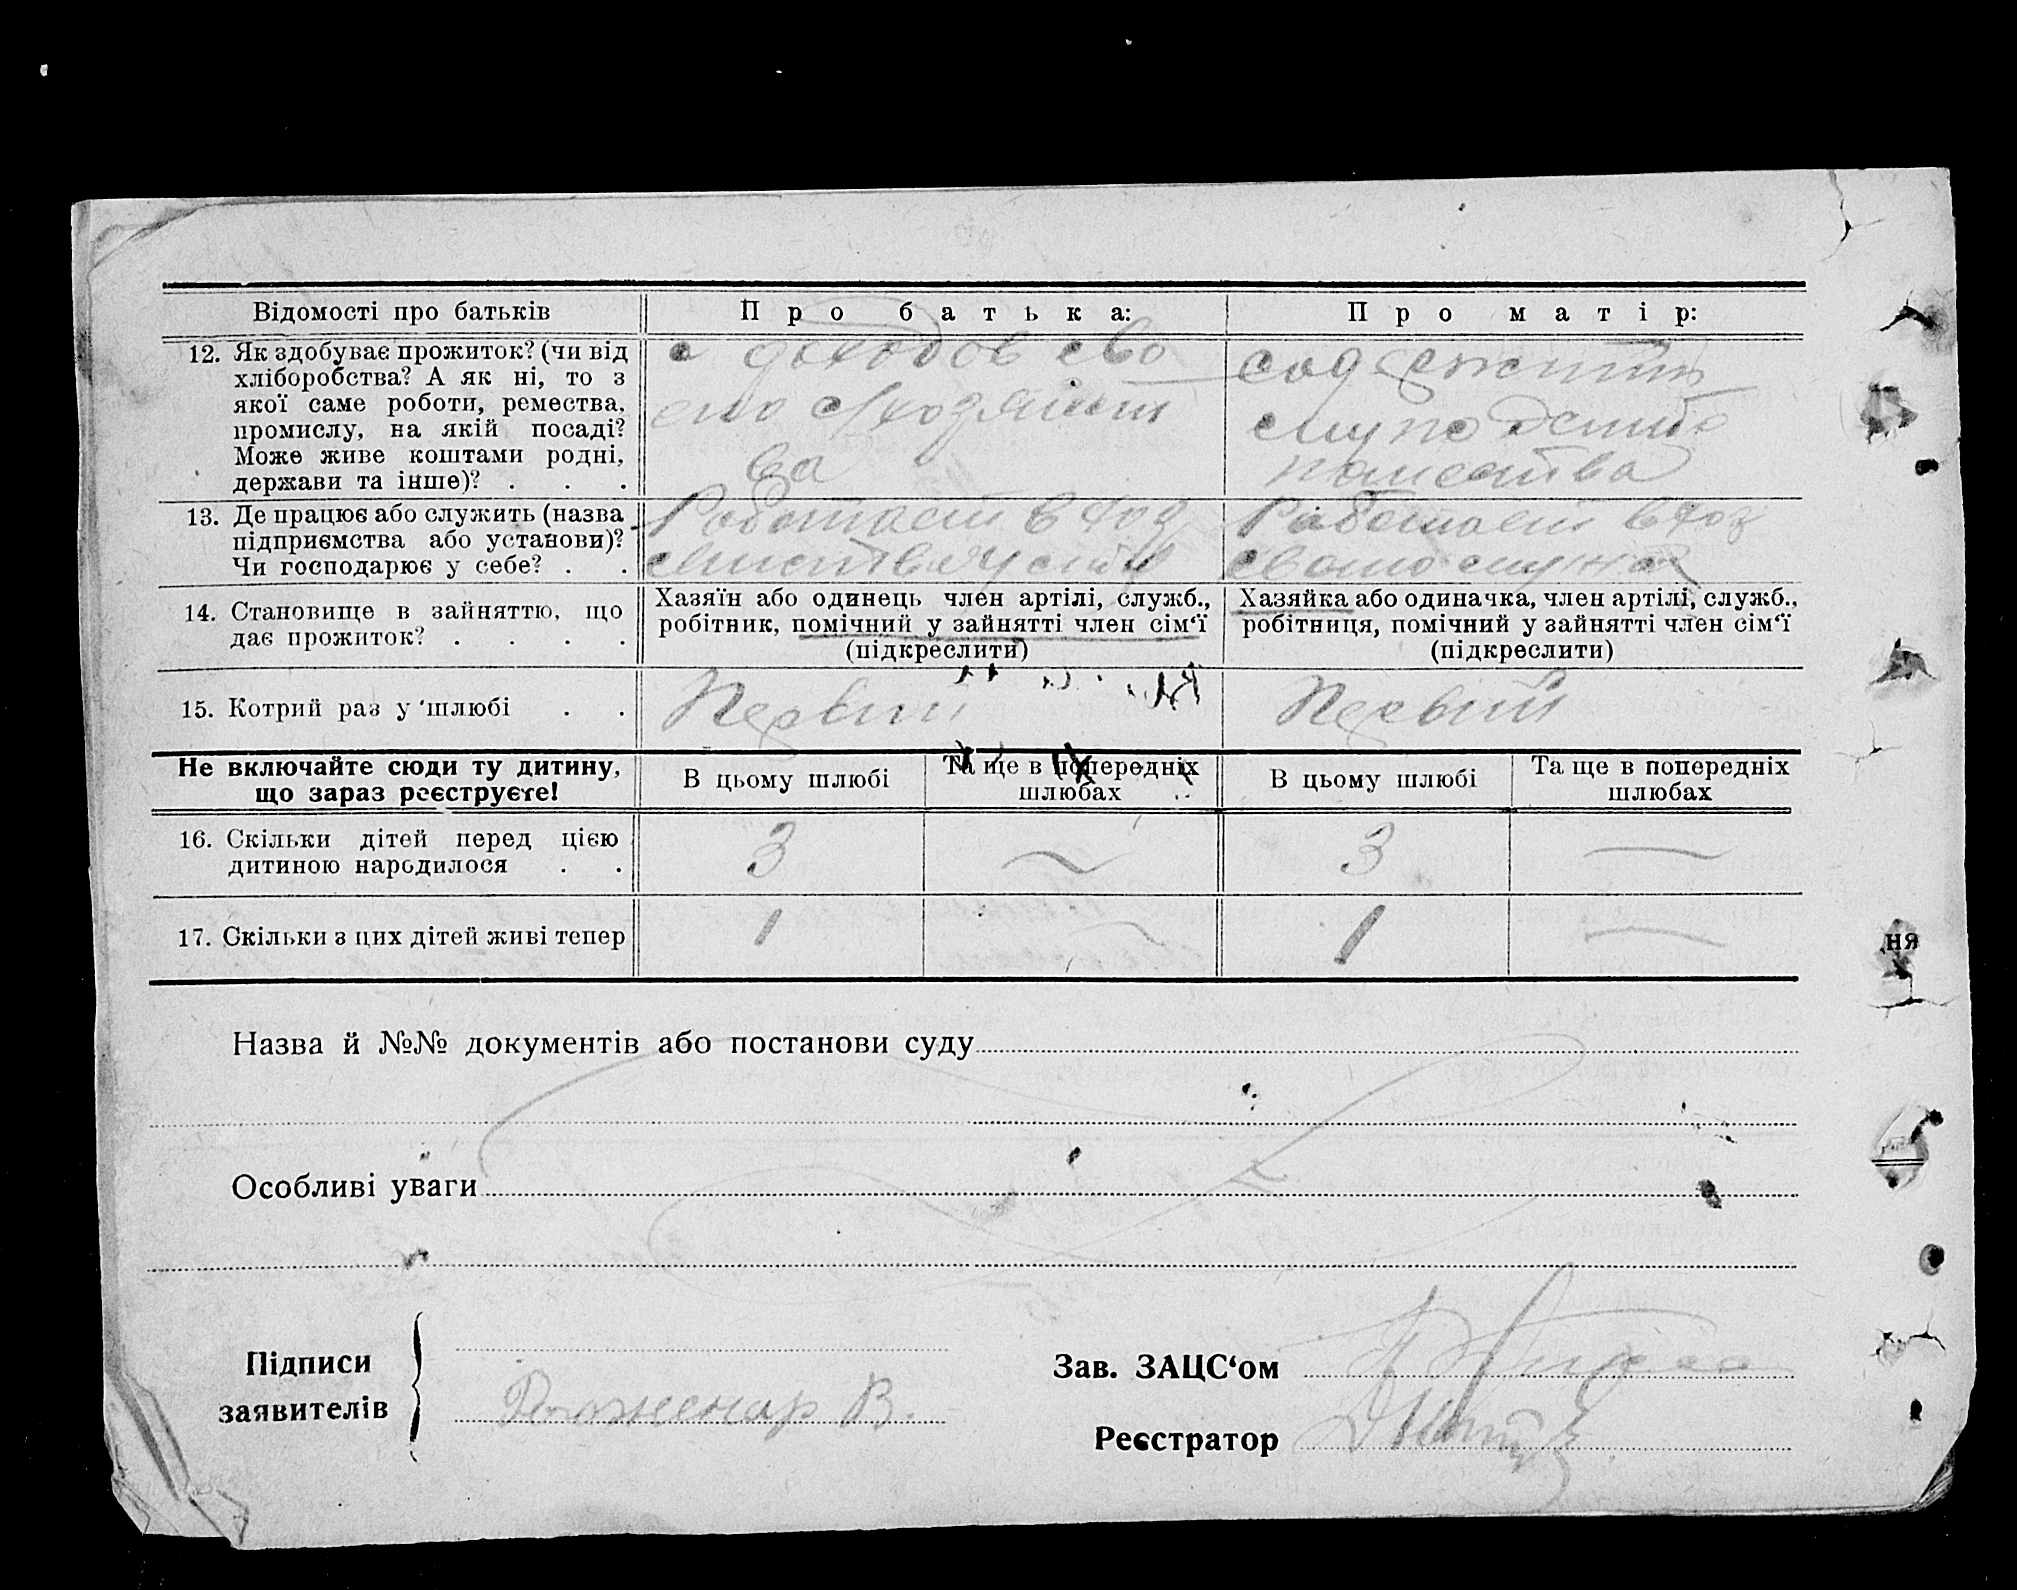 Відомості про батьків
Про батька:
Про матір:
12. Як здобуває прожиток? (чи від
хліборобства? А як ні, то з
якої саме роботи, ремества,
промислу, на якій посаді?
Може живе коштами родні,
держави та інше)? . . .
доходов сво
его
ва
13. Де працює або служить (назва
підприємства або установи)?
Чи господарює у себе? . .
Работает в хоз
Работает в хоз
своего мужа
14. Становище в зайняттю, що
дає прожиток? . . . .
Хазяїн або одинець член артілі, служб.,
робітник, помічний у зайнятті член сім‘ї
(підкреслити)
Хазяйка або одиначка, член артілі, служб.,
робітниця, помічний у зайнятті член сім‘ї
(підкреслити)
15. Котрий раз у шлюбі . .
Первий
Первий
Не включайте сюди ту дитину,
що зараз реєструєте!
В цьому шлюбі
Та ще в попередніх
шлюбах
В цьому шлюбі
Та ще в попередніх
шлюбах
16. Скільки дітей перед цією
дитиною народилося . .
3
—
3
—
17. Скільки з цих дітей живі тепер
1
—
1
—
ня
Назва й №№ документів або постанови суду
Особливі уваги
Підписи
заявителів
В.
Зав. ЗАЦС‘ом
Реєстратор